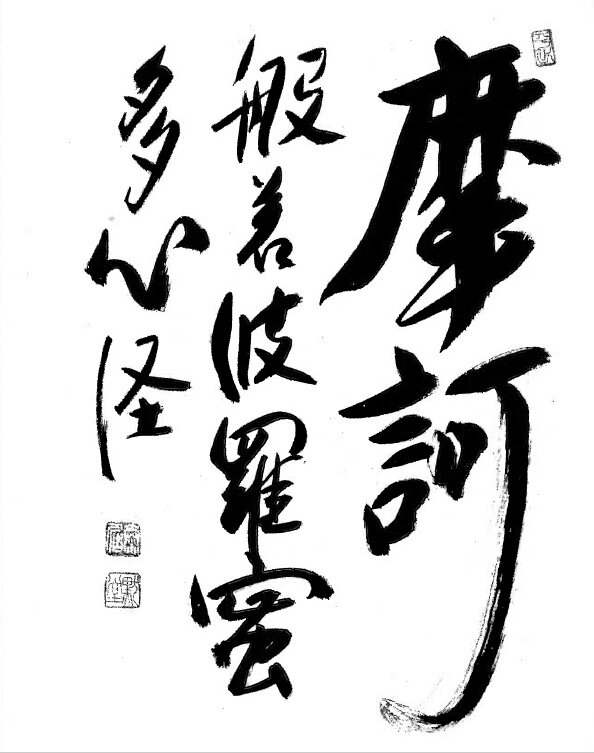 摩訶
般若波羅蜜
多心经